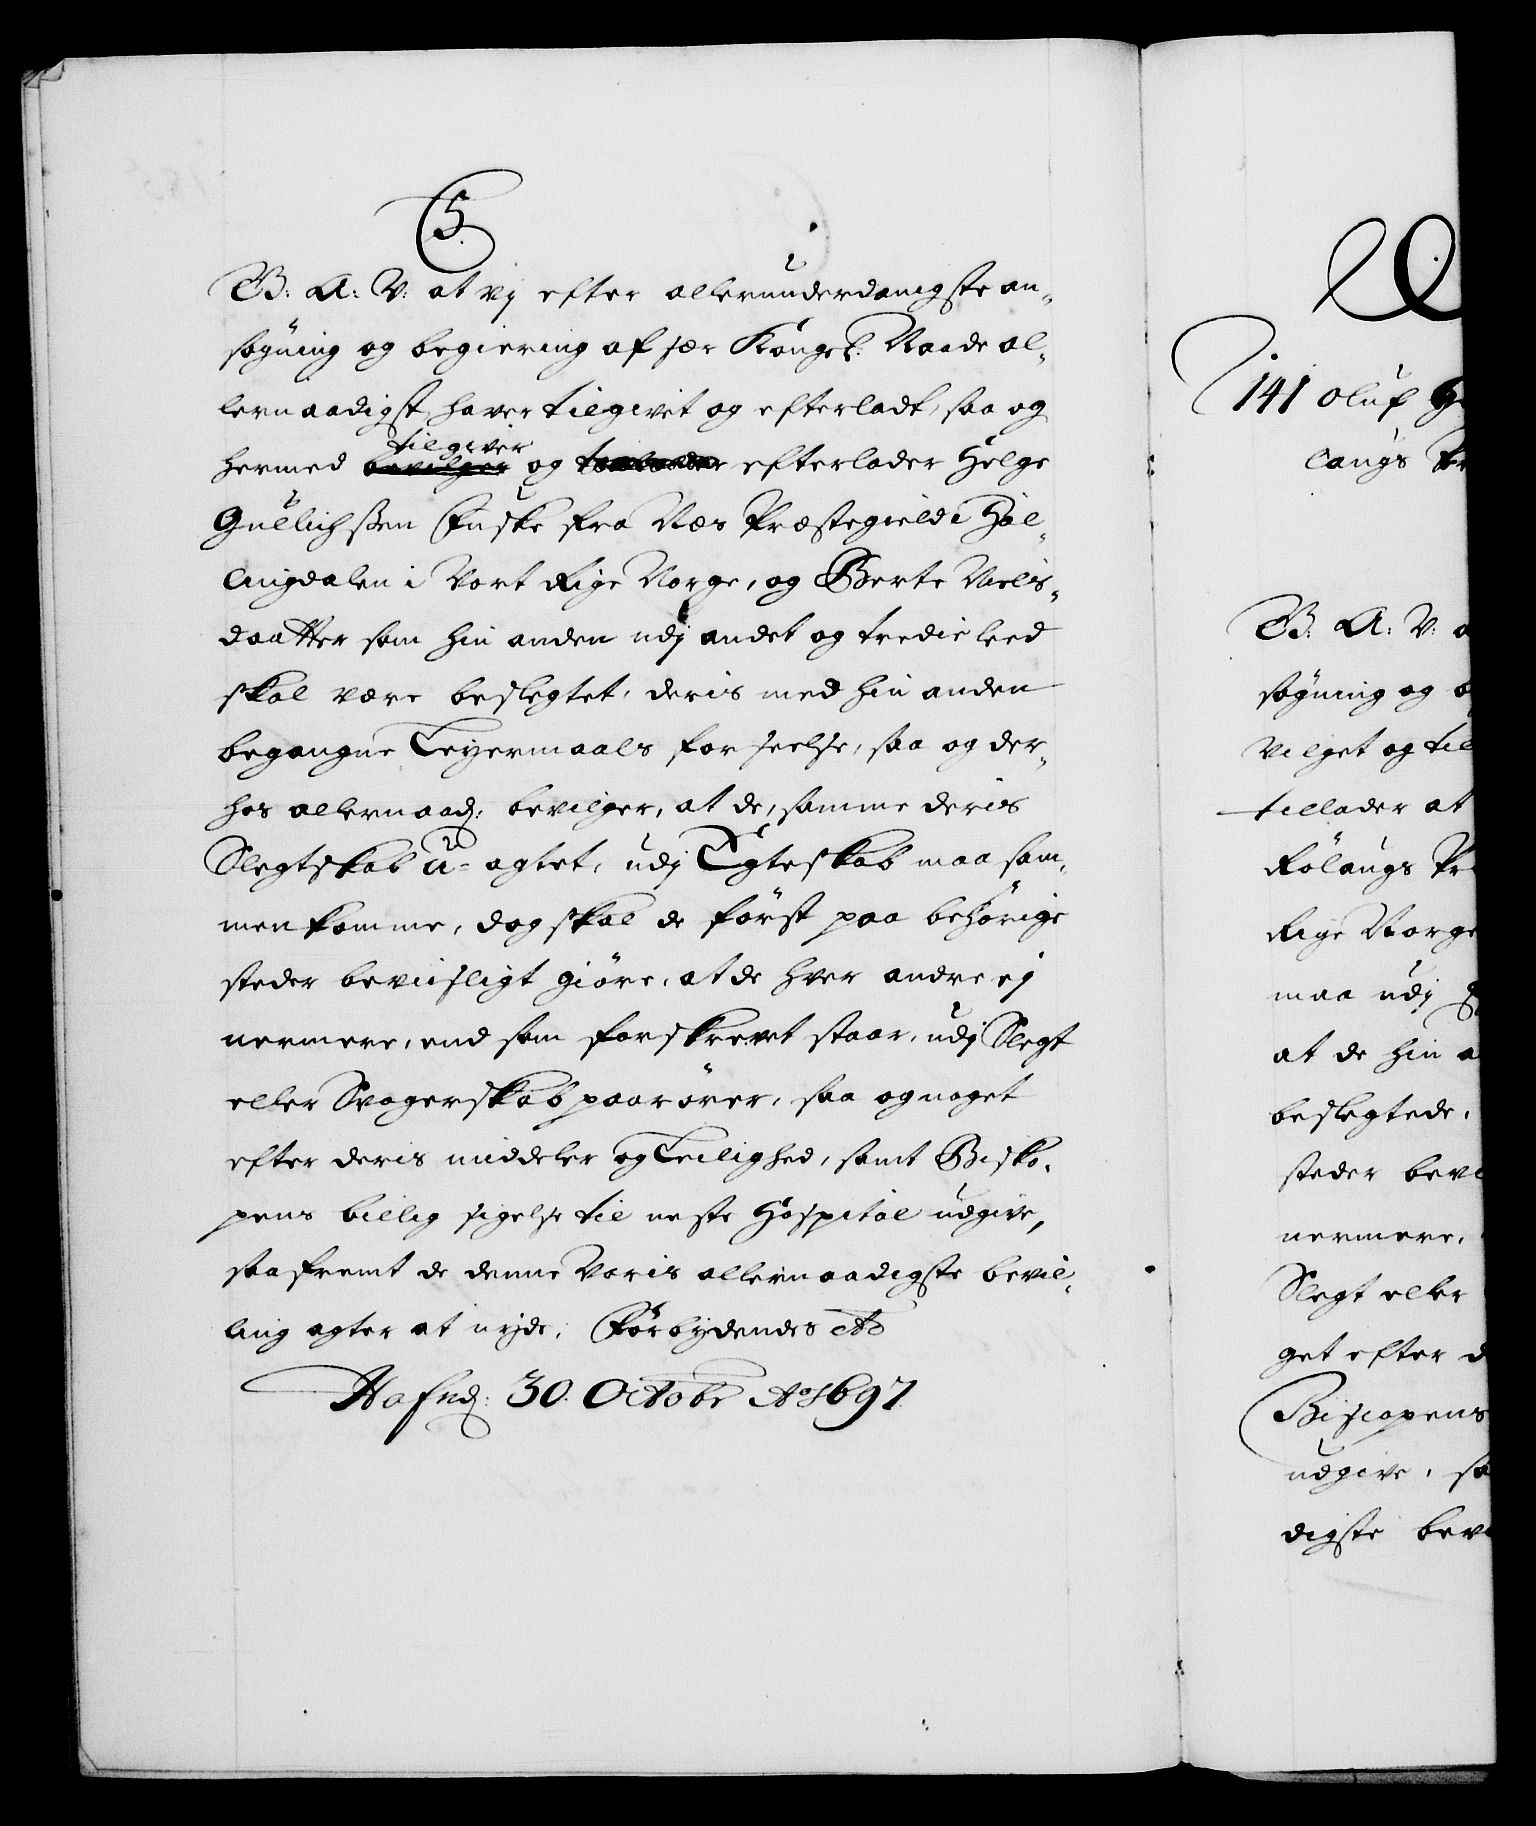 5.
B: A: V: at vj efter allerunderdanigste an-
søgning og begiering af sær Kongel: Naade al-
lernaadigst haver tilgivet og efterladt, saa og
hermed bevilger tilgiver og efterlader Helge
Gullichssen Fuske fra Næs Præstegield i Hal-
lingdalen i Vort Rige Norge, og Berte Niels-
daatter som hin anden udj andet og tredie leed
skal være beslegtet, deris med hin anden
begangne Leyermaals forseelse, saa og der-
hos allernaad: bevilger, at de, samme deris
Slegtskab u-agtet, udj Egteskab maa sam-
menkomme, dog skal de først paa behörige
steder beviisligt giöre, at de hver andre ej
nermere, end som forskrevet staar, udj Slegt
eller Svogerskab paarörer, saa og noget
efter deris middeler og Leilighed, samt Bisko-
pens billig sigelse til neste Hospital udgive,
saafremt de denne Voris allernaadigste bevil-
ling agter at nyde, Forbydendes etc
Hafnd: 30. Octobr Ao 1697.
141 Oluf
laugs
B: A: V:
søgning og
vilget og til
tillader at
Rölaugs
Rige Norge
maa udj
at de hin
beslegtede,
steder
nermere,
Slegt eller
get efter
Biscopens
udgive,
digste